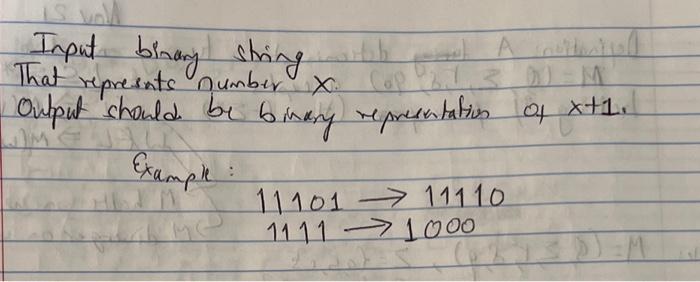 Input binary string
That represents number x.
Output should be binary representation of x+1.
Example:
11101 → 11110
1111 → 1000